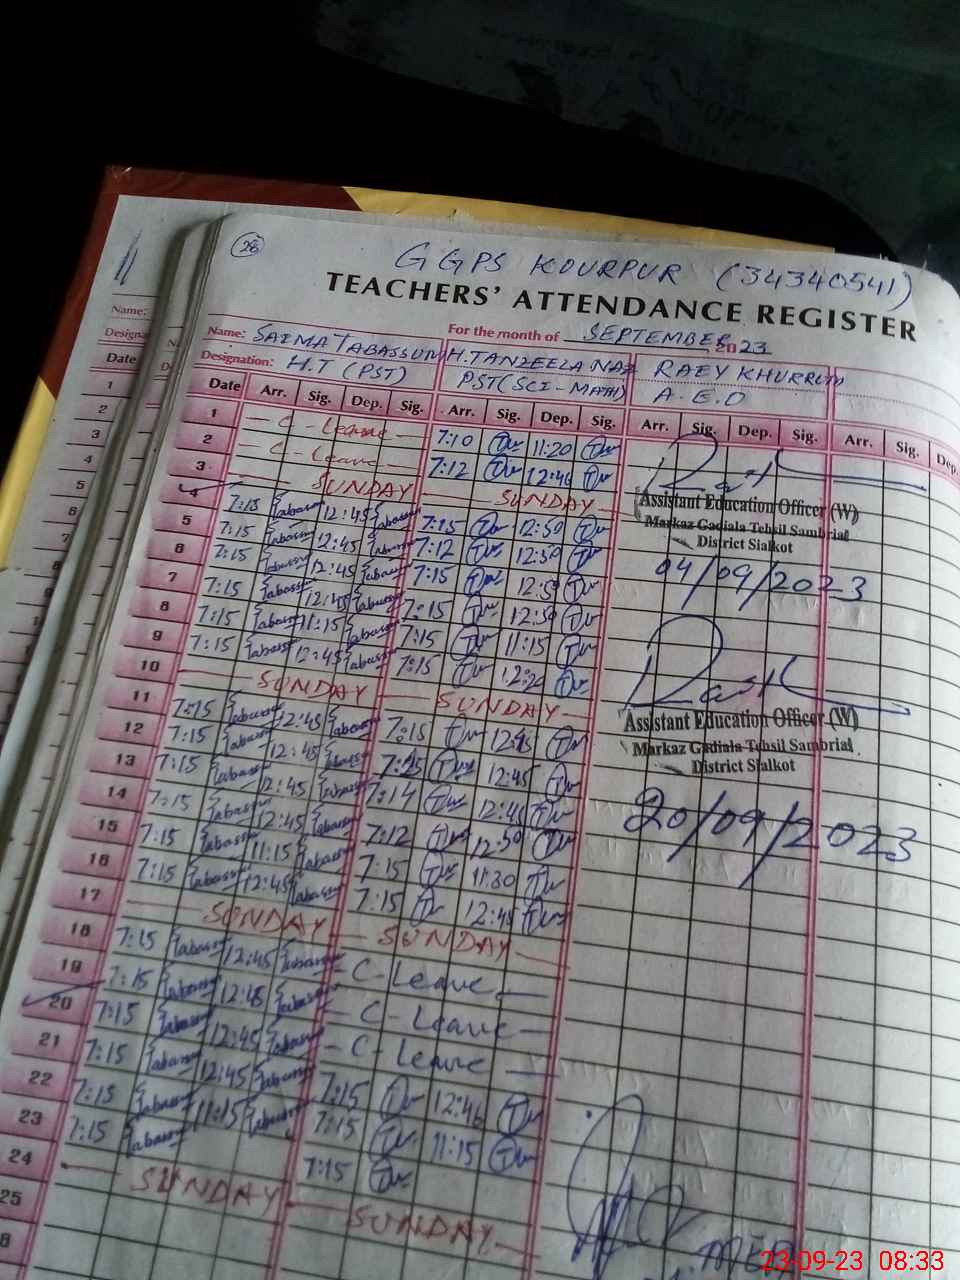 28
GGPS KOURPUR (34340541)
TEACHERS' ATTENDANCE REGISTER
For the month of SEPTEMBER 2023
Name: SAIMA TABASSUM H.TANZEELA NAZ RAEY KHURRUM
Designation: H.T (PST) PST(SCI-MATH) A.E.O
Date Arr. Sig. Dep. Sig. Arr. Sig. Dep. Sig. Arr. Sig. Dep. Sig. Arr. Sig. Dep.
1 C-Leave 7:10 11:20
2 C-Leave 7:12 12:46
3 SUNDAY SUNDAY
4 7:15 Tabassum 12:45 Tabassum 7:15 12:50
5 7:15 Tabassum 12:45 Tabassum 7:12 12:50
6 7:15 Tabassum 12:45 Tabassum 7:15 12:50
7 7:15 Tabassum 12:45 Tabassum 7:15 12:50
8 7:15 Tabassum 11:15 Tabassum 7:15 11:15
9 7:15 Tabassum 12:45 Tabassum 7:15 12:20
10 SUNDAY SUNDAY
11 7:15 Tabassum 12:45 Tabassum 7:15 12:45
12 7:15 Tabassum 12:45 Tabassum 7:15 12:45
13 7:15 Tabassum 12:45 Tabassum 7:14 12:45
14 7:15 Tabassum 12:45 Tabassum 7:12 12:50
15 7:15 Tabassum 11:15 Tabassum 7:15 11:30
16 7:15 Tabassum 12:45 Tabassum 7:15 12:45
17 SUNDAY SUNDAY
18 7:15 Tabassum 12:45 Tabassum C-Leave
19 7:15 Tabassum 12:45 Tabassum C-Leave
20 7:15 Tabassum 12:45 Tabassum C-Leave
21 7:15 Tabassum 12:45 Tabassum 7:15 12:46
22 7:15 Tabassum 11:15 Tabassum 7:15 11:15
23 7:15 Tabassum 7:15
24 SUNDAY SUNDAY
25
Assistant Education Officer (W)
Markaz Gadiala Tehsil Sambrial
District Sialkot
04/09/2023
Assistant Education Officer (W)
Markaz Gadiala Tehsil Sambrial
District Sialkot
20/09/2023
MEA
Name:
Designa
Date
1
2
3
4
5
6
7
8
23-09-23 08:33